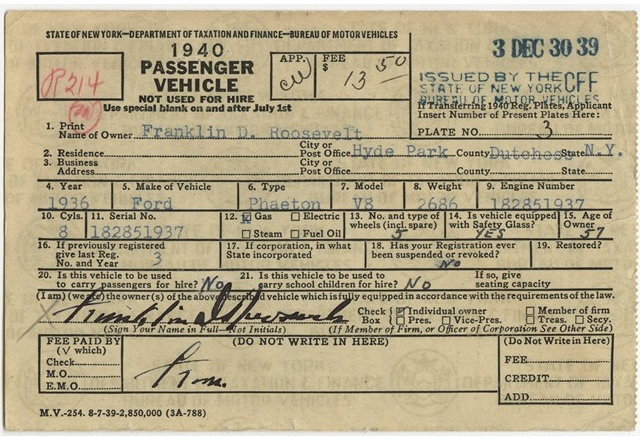 STATE OF NEW YORK—DEPARTMENT OF TAXATION AND FINANCE—BUREAU OF MOTOR VEHICLES
P214
1940
PASSENGER
VEHICLE
NOT USED FOR HIRE
Use special blank on and after July 1st
APP.
FEE
$ 13 50
3 DEC 30 39
ISSUED BY THE CFF
STATE OF NEW YORK
BUREAU OF MOTOR VEHICLES
If Transferring 1940 Reg. Plates, Applicant
Insert Number of Present Plates Here:
PLATE NO. 3
1. Print
Name of Owner Franklin D. Roosevelt
2. Residence City or Post Office Hyde Park County Dutchess State N.Y.
3. Business Address City or Post Office County State
4. Year 5. Make of Vehicle 6. Type 7. Model 8. Weight 9. Engine Number
1936 Ford Phaeton V8 2686 182851937
10. Cyls. 11. Serial No. 12. x Gas Electric 13. No. and type of wheels (incl. spare) 14. Is vehicle equipped with Safety Glass? 15. Age of Owner
8 182851937 Steam Fuel Oil 5 YES 57
16. If previously registered give last Reg. No. and Year 3 17. If corporation, in what State incorporated 18. Has your Registration ever been suspended or revoked? No 19. Restored?
20. Is this vehicle to be used to carry passengers for hire? No 21. Is this vehicle to be used to carry school children for hire? No If so, give seating capacity
(I am) (we are) the owner(s) of the above described vehicle which is fully equipped in accordance with the requirements of the law.
Franklin D Roosevelt Check Box Individual owner Member of firm
Pres. Vice-Pres. Treas. Secy.
(Sign Your Name in Full—Not Initials) (If Member of Firm, or Officer of Corporation See Other Side)
FEE PAID BY
(√ which)
Check
M.O.
E.M.O.
(DO NOT WRITE IN HERE)
(Do Not Write in Here)
FEE
CREDIT
ADD.
M.V.-254. 8-7-39-2,850,000 (3A-788)